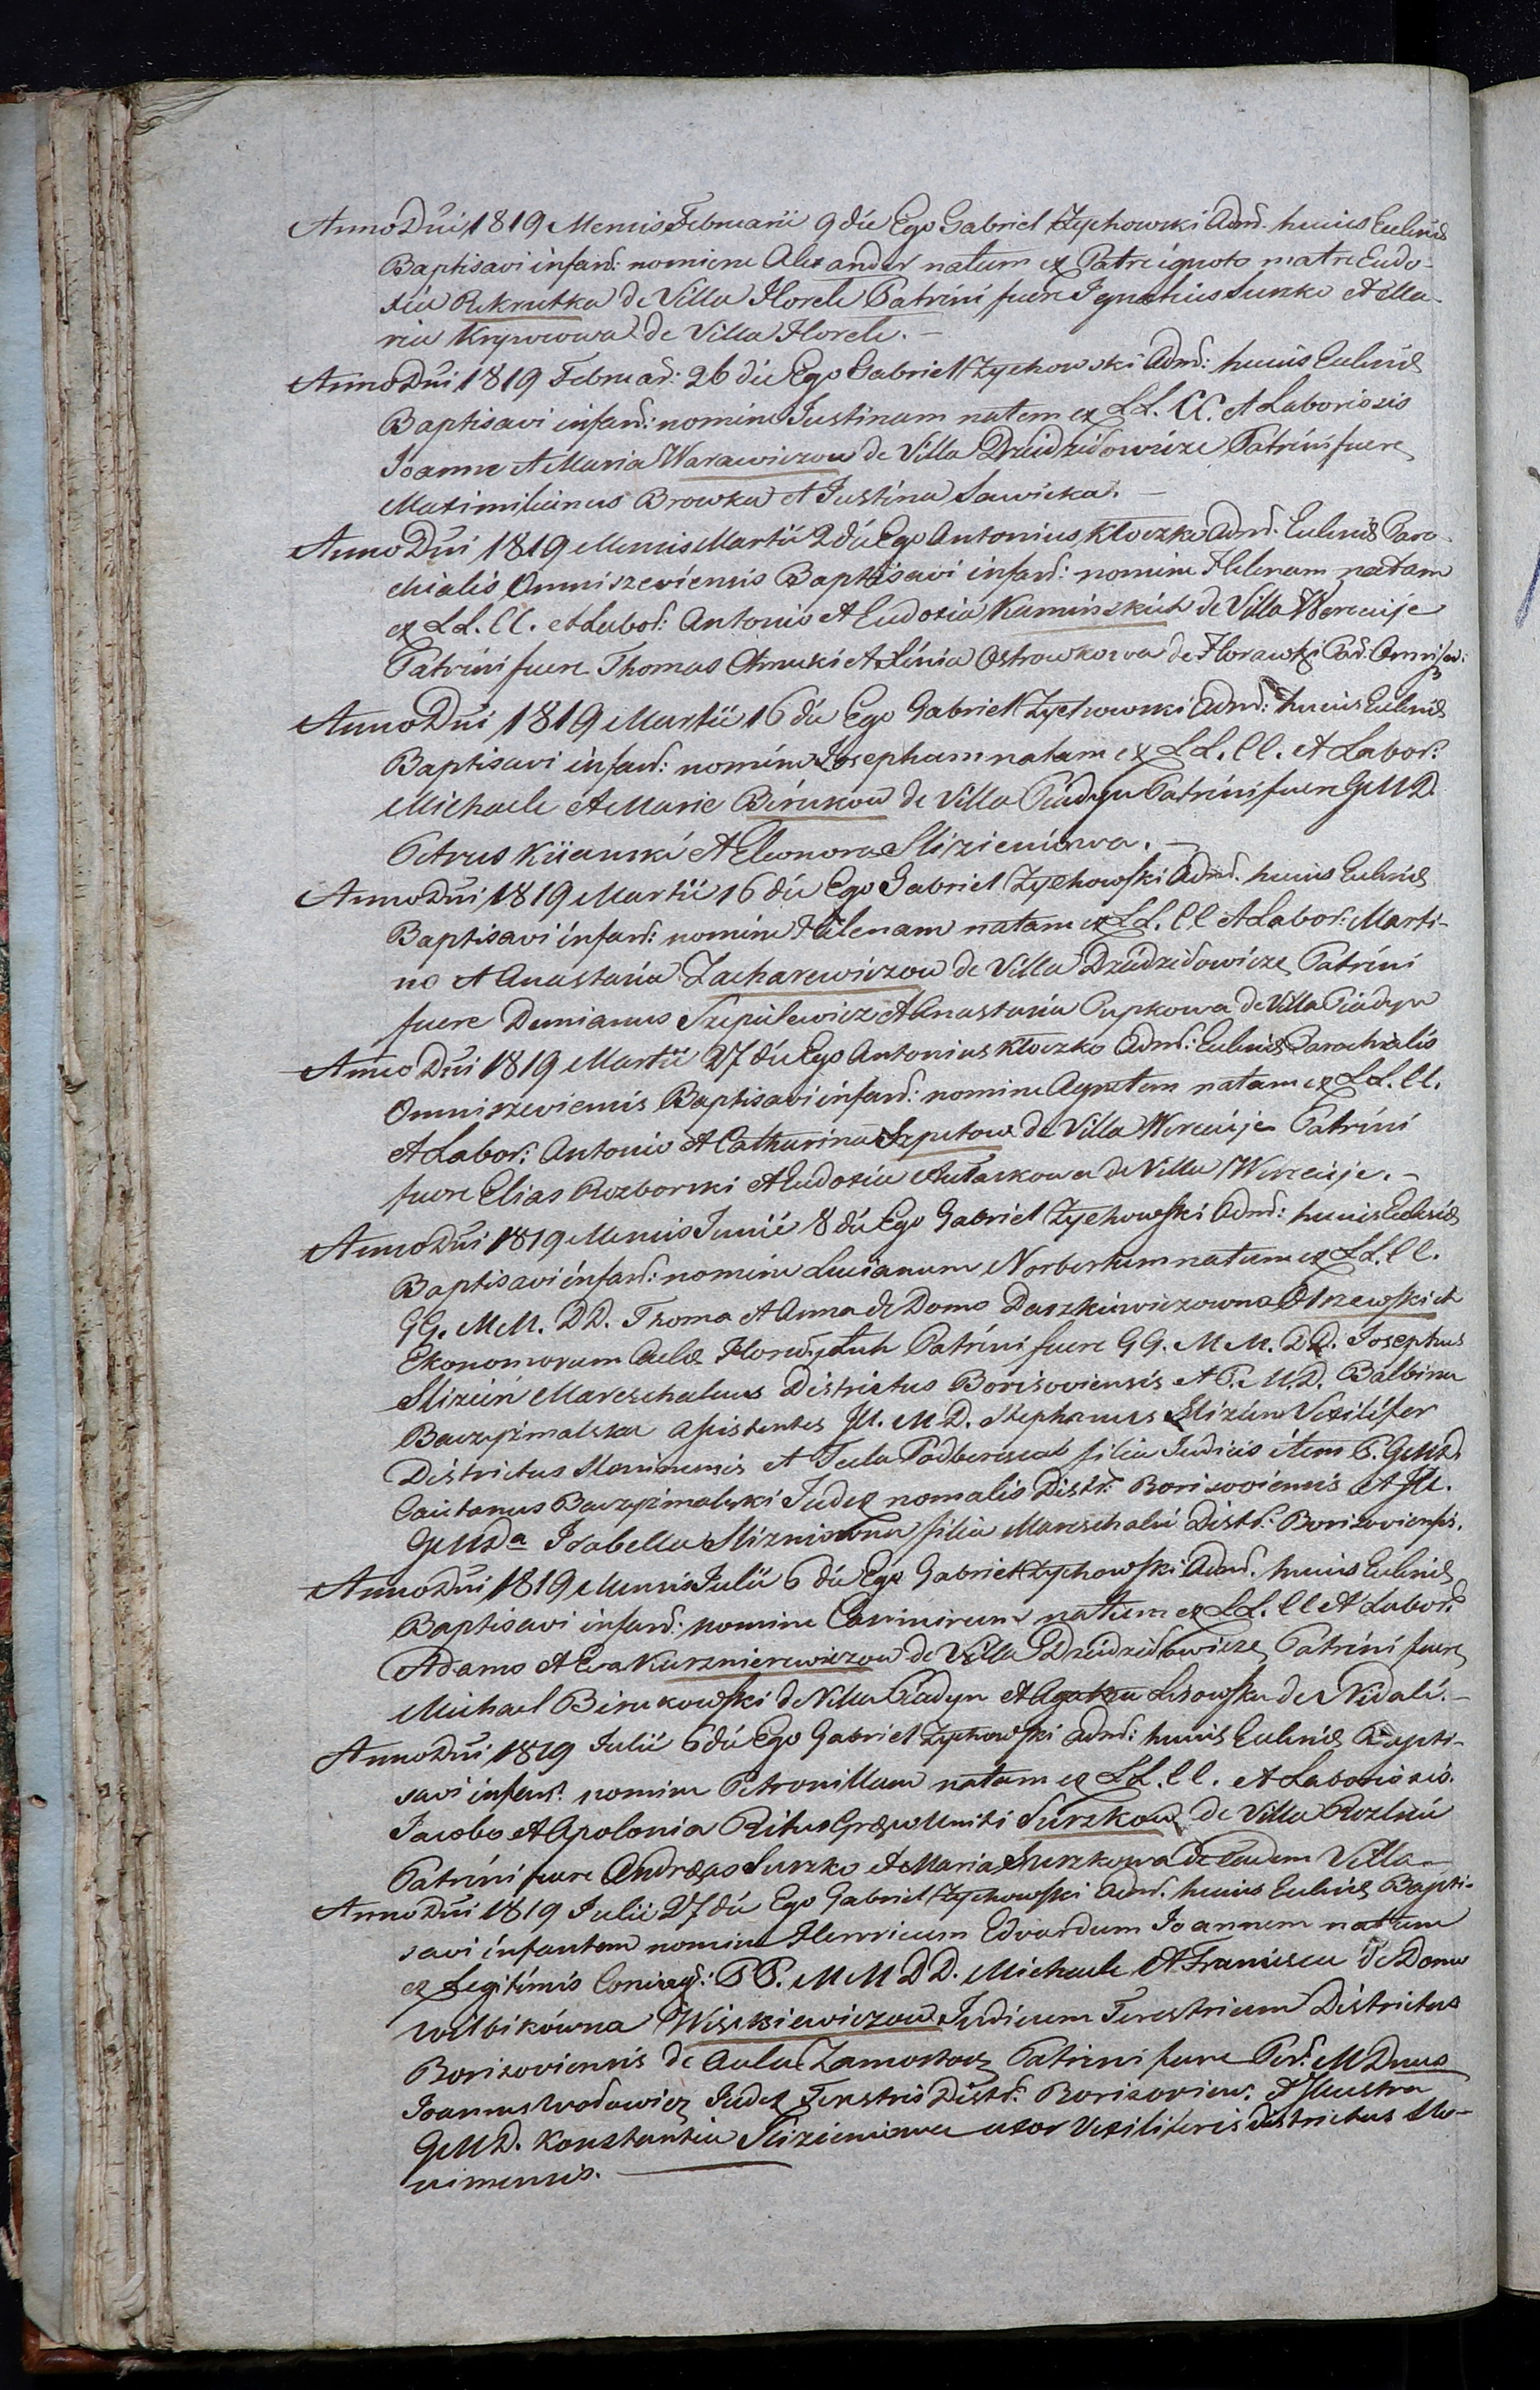 Anno Dni 1819 Mensis Februarii 9 die Ego Gabriel Zychowski Admr. huius Eccliae
Baptisavi infan: nomiene Alexander natum ex Patre ignoto matre Eudo-
xia Rekrutka de Villa Horeli Patrini fuere Ignatius Suszko et Ma-
ria Krywcowa de Villa Horeli. —
Anno Dni 1819 Februar: 26 die Ego Gabriel Zychowski Admr: huius Eccliae
Baptisavi infan: nomine Justinam natam ex LL. CC. et Laboriosis
Joanne et Maria Warawiczow de Villa Dzidzidowicze Patrini fuere
Maximilianus Browka et Justina Sawicka. —
Anno Dni 1819 Mensis Martii 2 die Ego Antonius Kloczko Admr. Eccliae Paro-
chialis Omniszeviensis Baptisavi infan: nomine Helenam natam
ex LL. CC. et Labor: Antonio et Eudoxia Kaminskich de Villa Wereuje
Patrini fuere Thomas et Xinia Ostrowkowa de Horawki Par: Omnisz:
Anno Dni 1819 Martii 16 die Ego Gabriel Zychowski Admr: huius Eccliae
Baptisavi infan: nomine Josepham natam ex LL. CC. et Labor:
Michaele et Marie Birukow de Villa Piadyn Patrini fuere GMD.
Petrus Kiianski et Eleonora Slizieniowa. —
Anno Dni 1819 Martii 16 die Ego Gabriel Zychowski Admr. huius Eccliae
Baptisavi infan: nomine Helenam natam ex LL. CC et Labor: Marti-
no et Anastasia Zacharewiczow de Villa Dzidzidowicze Patrini
fuere Demianus Szepielewicz et Anastasia Pupkowa de Villa Piadyn
Anno Dni 1819 Martii 27 die Ego Antonius Kloczko Admr: Eccliae Parochialis
Omniszeviensis Baptisavi infan: nomine Agnetem natam ex LL. CC.
et Labor: Antonio et Catharina Szpetow de Villa Wereuje Patrini
fuere Elias Rozborski et Eudoxia de Villa Wereuje. —
Anno Dni 1819 Mensis Junii 8 die Ego Gabriel Zychowski Admr: huius Eccliae
Baptisavi infan: nomine Lucianum Norbertum natum ex LL. CC.
GG. MM. DD. Thoma et Anna de Domo Daszkiewiczowna Olszewskich
Ekonomorum Aulae Patrini fuere GG. MM. DD. Josephus
Slizien Mareschalcus Districtus Borisoviensis et P. M.D. Balbina
Baczyzmalska Assistentes Jll. M D. Stephanus Slizien Vexilifer
Districtus Slonimensis et Tecla Podbereska filia Judicis item P. GMD
Caietanus Baczyzmalski Judex nomalis Distr: Borisoviensis et Jll.
GMDa Isabella Slizniowna filia Mareschalci Distr: Borisoviensis.
Anno Dni 1819 Mensis Julii 6 die Ego Gabriel Zychowski Admr. huius Eccliae
Baptisavi infan: nomine Casimirum natum ex LL. CC et Labor:
Adamo et Eva Kurznierewiczow de Villa Dzidzidowicze Patrini fuere
Michael Birukowski de Villa Piadyn et Agatha Lisowska de Nidali. —
Anno Dni 1819 Julii 6 die Ego Gabriel Zychowski Admr: huius Eccliae Bapti-
savi infan: nomine Petronillam natam ex LL. CC. et Laboriosis.
Jacobo et Apolonia Ritus Graeco Uniti Suszkow de Villa
Patrini fuere Andreas Suszko et Maria Suszkowa de eadem Villa —
Anno Dni 1819 Julii 27 die Ego Gabriel Zychowski Admr. huius Eccliae Bapti-
savi infantem nomine Henricum Edvardum Joannem natum
ex Legitimis Coniug: PP. MM DD. Michaele et Francisca de Domo
Wolbikówna Wiszkiewiczow Judicum Terestrium Districtus
Borisoviensis de Aula Zamostocz Patrini fuere Per: MDnus
Joannes Wolodowicz Judex Terestris Distr: Borisovien: et Jllustra
GMD. Konstantia Slizieniowa uxor Vexiliferis districtus Slo-
nimensis. —